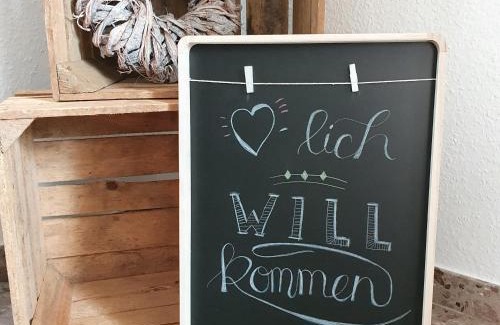 ♡ lich
WILL
kommen